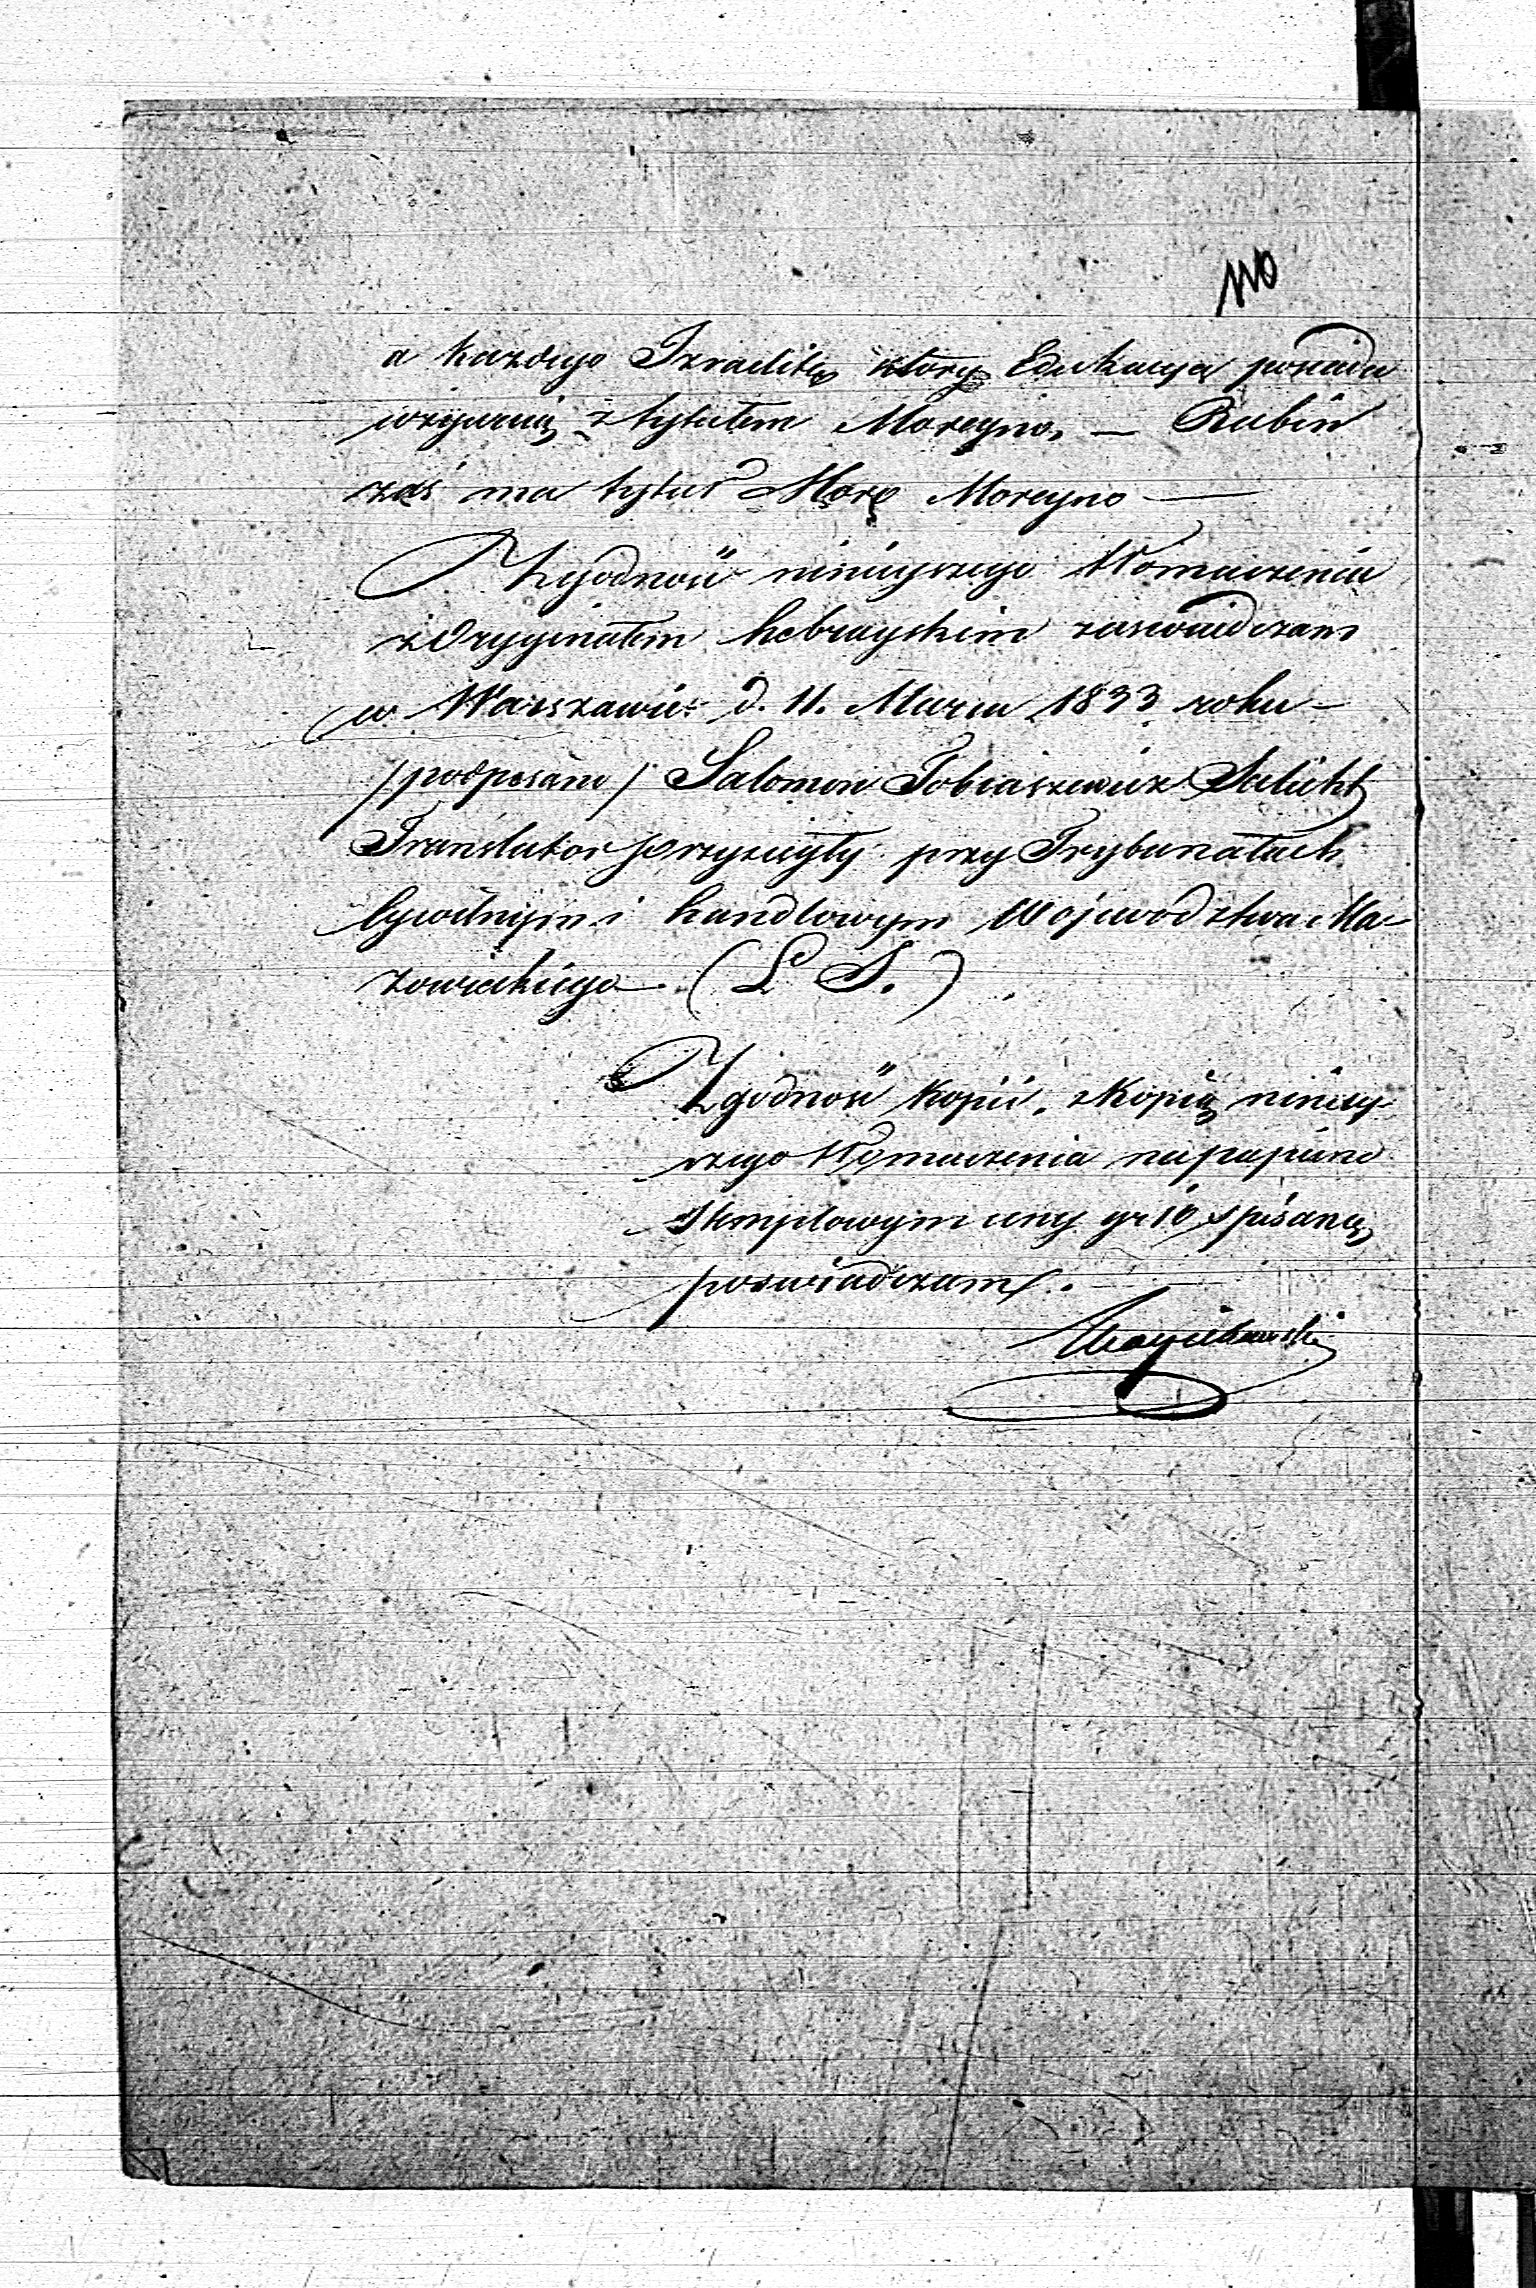 110
a każdego Izraelitę który Edukacyą posiada
wzywaią z tytułem Moreyno, — Rubin
zaś ma tytuł Morę Moreyno —
Zgodność ninieyszego tłomaczenia
z Oryginałem hebrayskim zaswiadczam
w Warszawie d. 11. Marca 1833 roku —
/podpisano/ Salomon Tobiaszewicz
Translator przysięgły przy Trybunałach
Cywilnym i handlowym Województwa Ma-
zowieckiego — (L S.)
Zgodność kopii, z Kopią niniey-
szego tłomaczenia na papierze
stemplowym ceny gr 10 spisaną,
poswiadczam. —